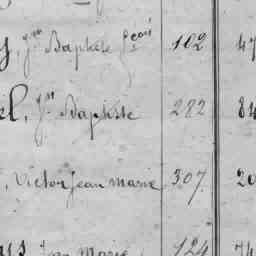 y, Jn Baptiste 102 47
el, Jn Baptiste 282 84
, Victor Jean Marie 307. 20
Jean Marie 124 74